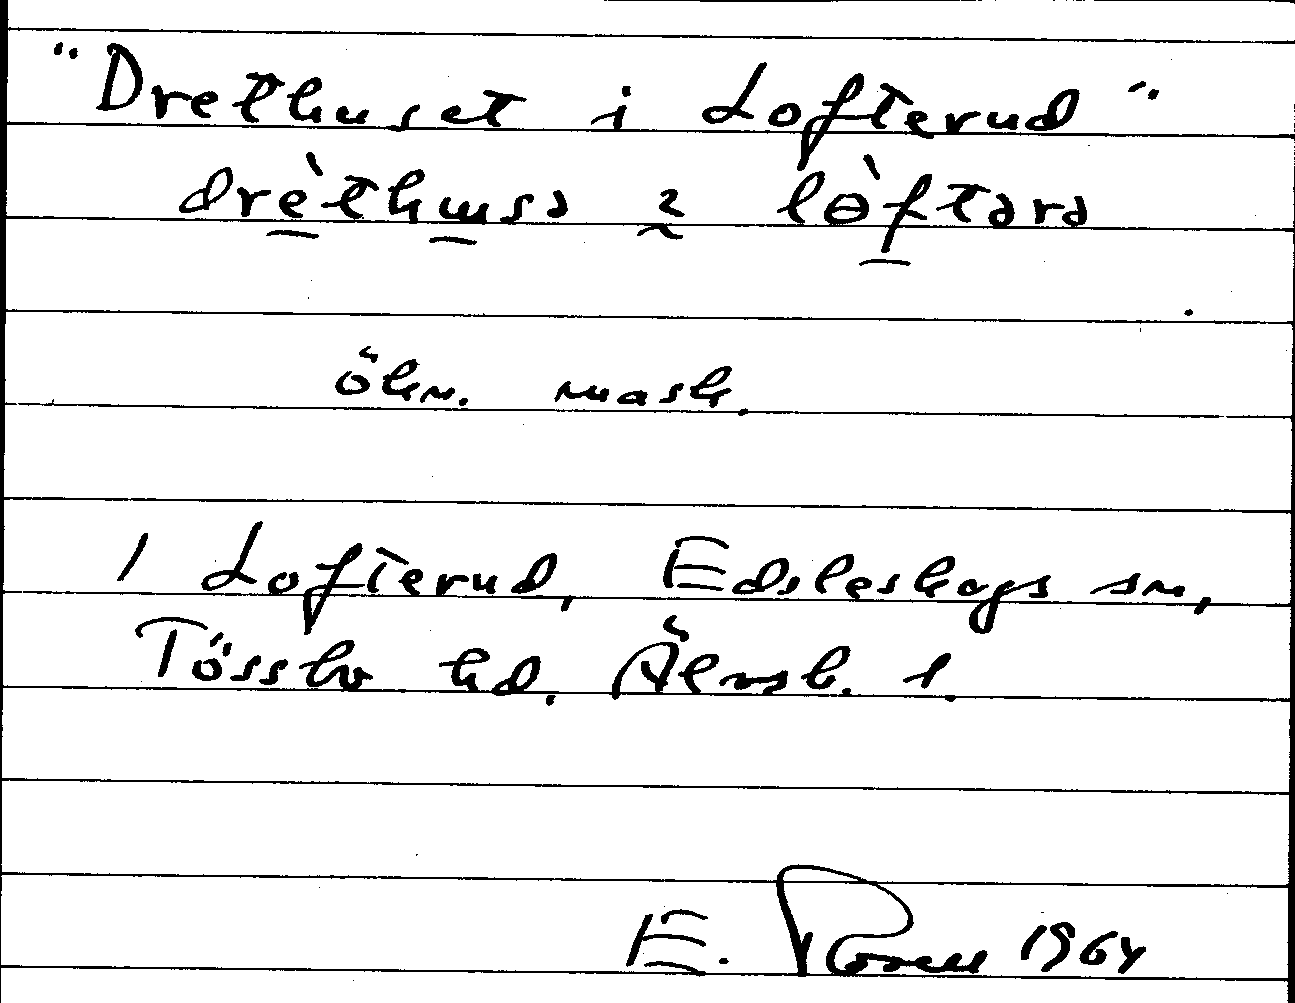 "Drethuset i Lofterud"
drèthusə 2 lòftərə
ökn. mask.
1 Lofterud, Edsleskogs sn,
Tössbo hd. Älvsb. l.
E. Rosell 1964